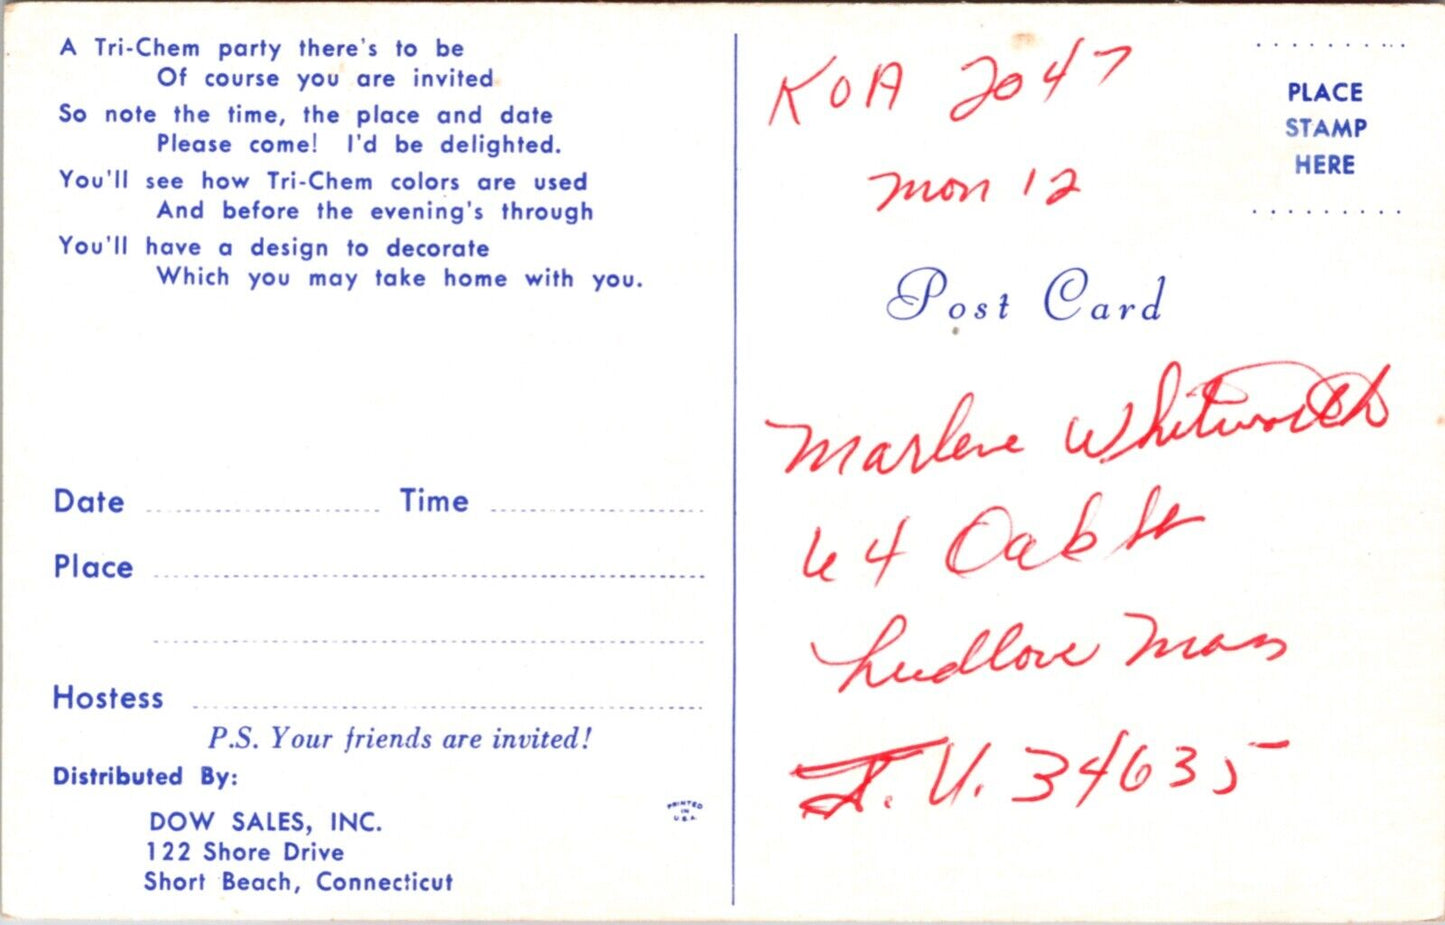 A Tri-Chem party there's to be
Of course you are invited
So note the time, the place and date
Please come! I'd be delighted.
You'll see how Tri-Chem colors are used
And before the evening's through
You'll have a design to decorate
Which you may take home with you.
Date Time
Place
Hostess
P.S. Your friends are invited!
Distributed By:
DOW SALES, INC.
122 Shore Drive
Short Beach, Connecticut
PRINTED
IN
U.S.A.
KOA 2047
Mon 12
PLACE
STAMP
HERE
Post Card
Marlene Whitworth
64 Oak St
Ludlove Mass
V. 34635